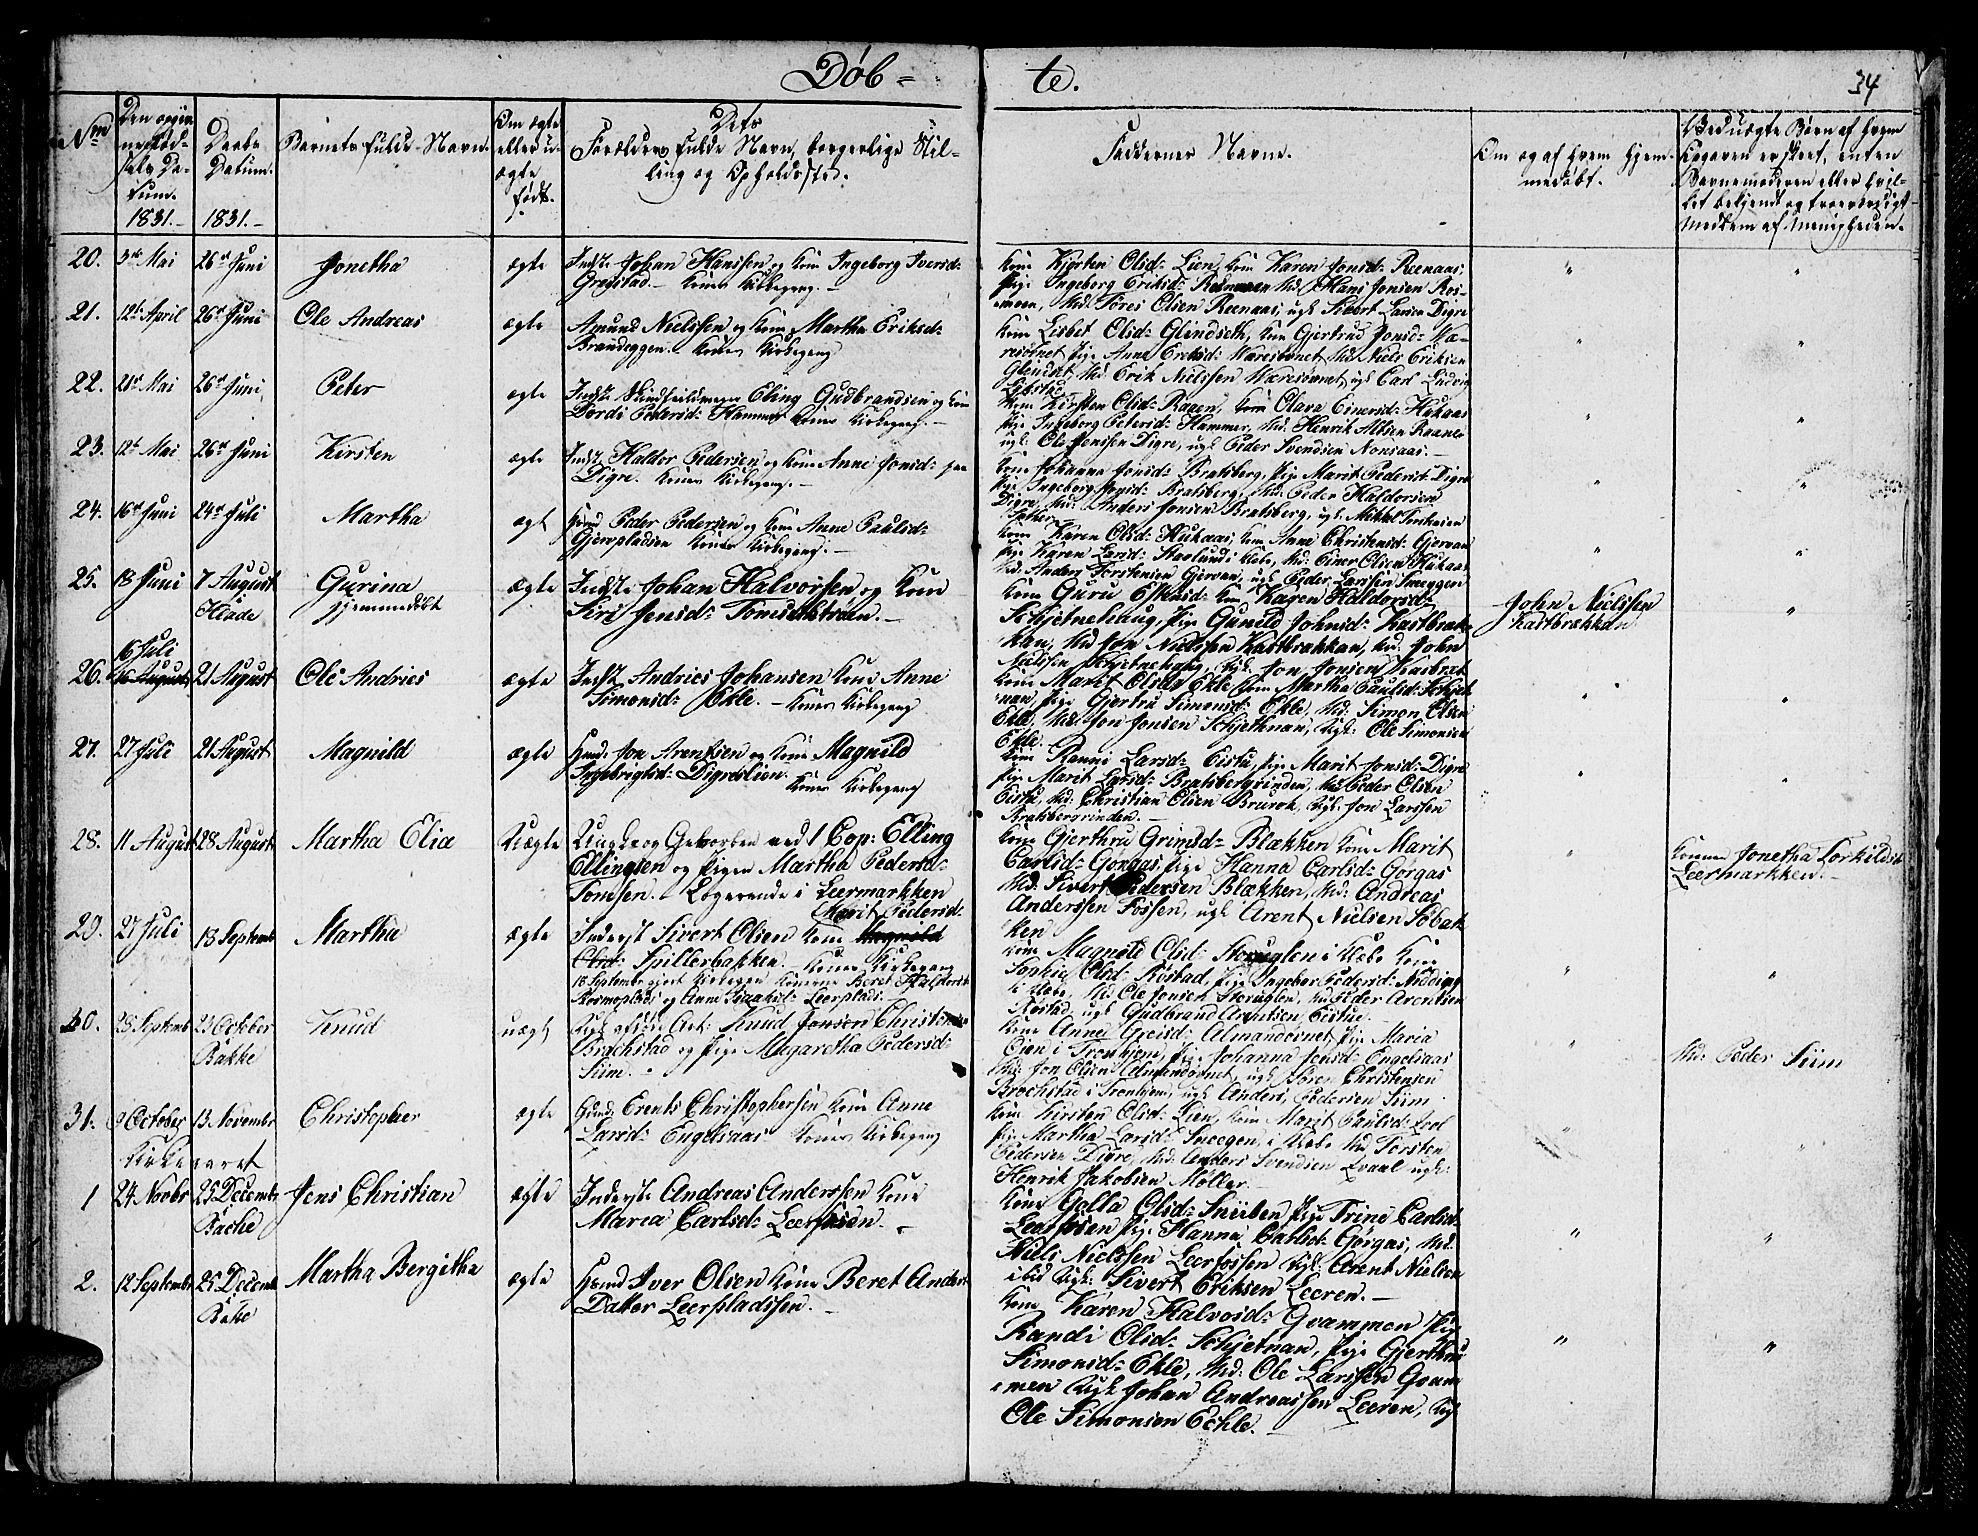 Døb=
te.
34
Nm
Den opgiv
ne Fød-
sels Da-
tum.
1831.-
Daabs
Datum.
1831.-
Barnets fulde Navn.
Om ægte
eller u-
ægte
født.
Dets
Forældres fulde Navn, borgerlige Stil-
ling og Opholdssted.
Faddernes Navne.
Om og af hvem hjem-
medøbt.
Ved uægte Børn af hvem
Opgaven er skeet, enten
Barnemoderen eller hvil-
ket bekjendt og troeværdigt
Medlem af Menigheden.
20. 3de Mai 26de Juni Jonetha ægte Indst Johan Hanssen og Kone Ingeborg Iversd=
Grøystad.- Kones Kirkegang.-
Kone Kjersten Olsd= Lien, Kone Karen Jonsd= Reenaas,
Pige Ingeborg Eriksd= Md. Hans Jonsen Ros-
moen, Md. Tores Olsen Reenaas, ugk Sivert Larsen Digre
21. 12te April 26de Juni Ole Andreas ægte Amund Nielssen og Kone Martha Eriksd=
Brandeggen.- Kones Kirkegang
Kone Lisbet Olsd= Glindseth, Kone Gjertrud Jonsd= Væ-
resøvnet Pige Anne Eriksd= Væresøvnet Md. Niels Eriksen
Md Erik Nielssen Væresøvnet, ugk Carl Ludvig
22. 21de Mai 26de Juni Peter ægte Indst. Eling Gudbrandsen og Kone
Dordi Pedersd= Hammer Kones Kirkegang.-
Kone Kirsten Olsd= Raaen, Kone Olava Einersd= Hukaas
Pige Ingeborg Petersd= Hammer, Md. Henrik Altsen Raanes
ugk Ole Jonssen Digre, ugk Peder Svendsen Nonsaas.-
23. 12te Mai 26de Juni Kirsten ægte Indst. Haldor Pedersen og Kone Anne Jonsd= paa
Digre. Kones Kirkegang.-
Kone Johanna Jonsd= Bratsberg, Pige Marit Pedersd= Digre
Pige Ingeborg Jonsd= Bratsberg, Md. Peder Haldorsen
Digre, Md. Anders Jonsen Bratsberg, ugk. Mikkel
24. 16de Juni 24de Juli Martha ægt Hmd Peder Pedersen og Kone Anne Paulsd=
Gjervpladsen Kones Kirkegang.-
Kone Karen Olsd= Hukaas, Kone Anne Christensd= Gjervan
Pige Karen Larsd= i Klæbo, Md. Einer Olsen Hukaas
Md. Anders Torstensen Gjervan, ugk Peder Larssen Sneeggen
25. 13 Juni 7 August
Hlade
Gurina
hjemmedøbt
ægte Indste Johan Halvorsen og Kone
Siri Jensd=
Kone Guru Kone Karen Haldorsd=
Schjetnehaug, Pige Gunild Johnsd= Kastbræk-
kan, Md Jon Nielssen Kastbrækkan, Md. John
Nielssen Schjetnehaug, Ugk. Jon Jonsen Kastbræk
John Nielssen
Kastbrækkan
26. 6 Juli
16 August 21 August Ole Andries ægte Indst Andries Johansen Kone Anne
Simonsd= Ekle.- Kones Kirkegang
Kone Marit Olsd= Ekle, Kone Martha Paulsd= Schjet
nan, Pige Gjertru Simonsd= Ekle, Md. Simon Olsen
Ekle, Md. Jon Jonsen Schjetnan, Ugk: Ole Simonsen
Ekle.
27. 27 Juli 21 August Magnild ægte Hmd: Jon Arentsen og Kone Magnild
Ingebrigtsd= Digreslien.
Kones Kirkegang
Kone Ranni Larsd= Eistu, Pige Marit Jonsd= Digre
Pige Marit Larsd= Bratsbergrinden, Md Peder Olsen
Eistu, Md: Christian Olsen Brurok, Ugk: Jon Larssen
Bratsbergrinden.-
28. 11 August 28 August Martha Elia Uægte Ungk og Gevorben ved 1 Cop: Elling
Ellingsen og Pigen Martha Pedersd=
Tomsen.- Logerende i Leermarkken
Kone Gjerthru Grimsd= Blækken Kone Marit
Carlsd= Gorgas, Pige Hanna Carlsd= Gorgas
Md. Sivert Pedersen Blækken, Md: Andreas
Anderssen Fossen, ugk Arent Nielsen Søbak
ken
Konen Jonetha Torkildsd:
Leermarkken.-
29. 27 Juli 18 Septembr Martha ægte Inderst Sivert Olsen Kone Marit Pedersd=
Spillerbakken.- Kones Kirkegang
18 Septembr gjort Kirkegang Konerne Beret Haldorsd
og Anne Leerplads.-
Kone Magnild Olsd= i Klæbo Kone
Sophie Olsd= Røstad, Pige Ingebor Pedersd= Nødding
i Klæbo, Md Ole Jonsen Md Peder Arentsen
Røstad, ugk Gudbrand Arntsen Eistue.-
30. 23 Septemb 23 Octbr
Bakke
Knud uægt Ugk afdøde Art: Knud Jonsen Christensen
Brochstad og Pige Magaretha Pedersd=
Siim.-
Kone Anne Greisd= Almandøvnet, Pige Maria
Oien i Tronhjem, Pige Johanna Jonsd= Engelsaas
Md: Jon Olsen Almandøvnet, ugk Soren Christensen
Brochstad i Tronhjem, ugk Anders Pedersen Siim.
Md: Peder Siim
31. 9 October 13 Novembr Christopher ægte Hmd Erents Christophersen Kone Anne
Larsd= Engelsaas Kones Kirkegang
Kone Kirsten Olsd= Lien, Kone Marit Paulsd=
Pige Martha Larsd= Sneegen, i Klæbo Md Torsten
Pedersen Digre, Md: Anders Svendsen ugk:
Henrik Jakobsen Møller.
Kirkeaaret
1 24. Novbr 25 Decembr
Bache
Jens Christian ægte Inderste Andreas Anderssen Kone
Maria Carlsd= Leerfossen.-
Kone Golla Olsd= Pige Trine Carlsd.
Leerfossen Pige Hanna Carlsd: Gorgas, Md.
Nills Nielssen Leerfossen Ugk: Arent Nielsen
ibid Ugk: Sivert Eriksen Leeren.-
2. 12 Septembr 25 Decemb
Bakke
Martha Bergitha ægte Hmd Iver Olsen Kone Beret Anders
Datter Leerpladssen.-
Kone Karen Halvosd= Gvammen Pig
Randi Olsd= Schjetnan, Pige Gjerthru
Simonsd= Ekle, Md: Ole Larssen Gvam
men Ugk Johan Andreassen Leeren, Ug
Ole Simonsen Echle.